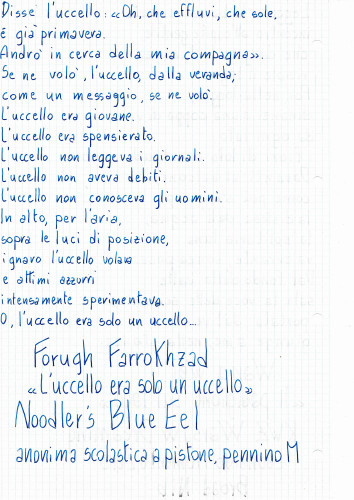 Disse l'uccello: «Oh, che effluvi, che sole,
è già primavera.
Andrò in cerca della mia compagna».
Se ne volò, l'uccello, dalla veranda;
come un messaggio, se ne volò.
L'uccello era giovane.
L'uccello era spensierato.
L'uccello non leggeva i giornali.
L'uccello non aveva debiti.
L'uccello non conosceva gli uomini.
In alto, per l'aria,
sopra le luci di posizione,
ignaro l'uccello volava
e attimi azzurri
intensamente sperimentava.
O, l'uccello era solo un uccello...
Forugh Farrokhzad
«L'uccello era solo un uccello»
Noodler's Blue Eel
anonima scolastica a pistone, pennino M